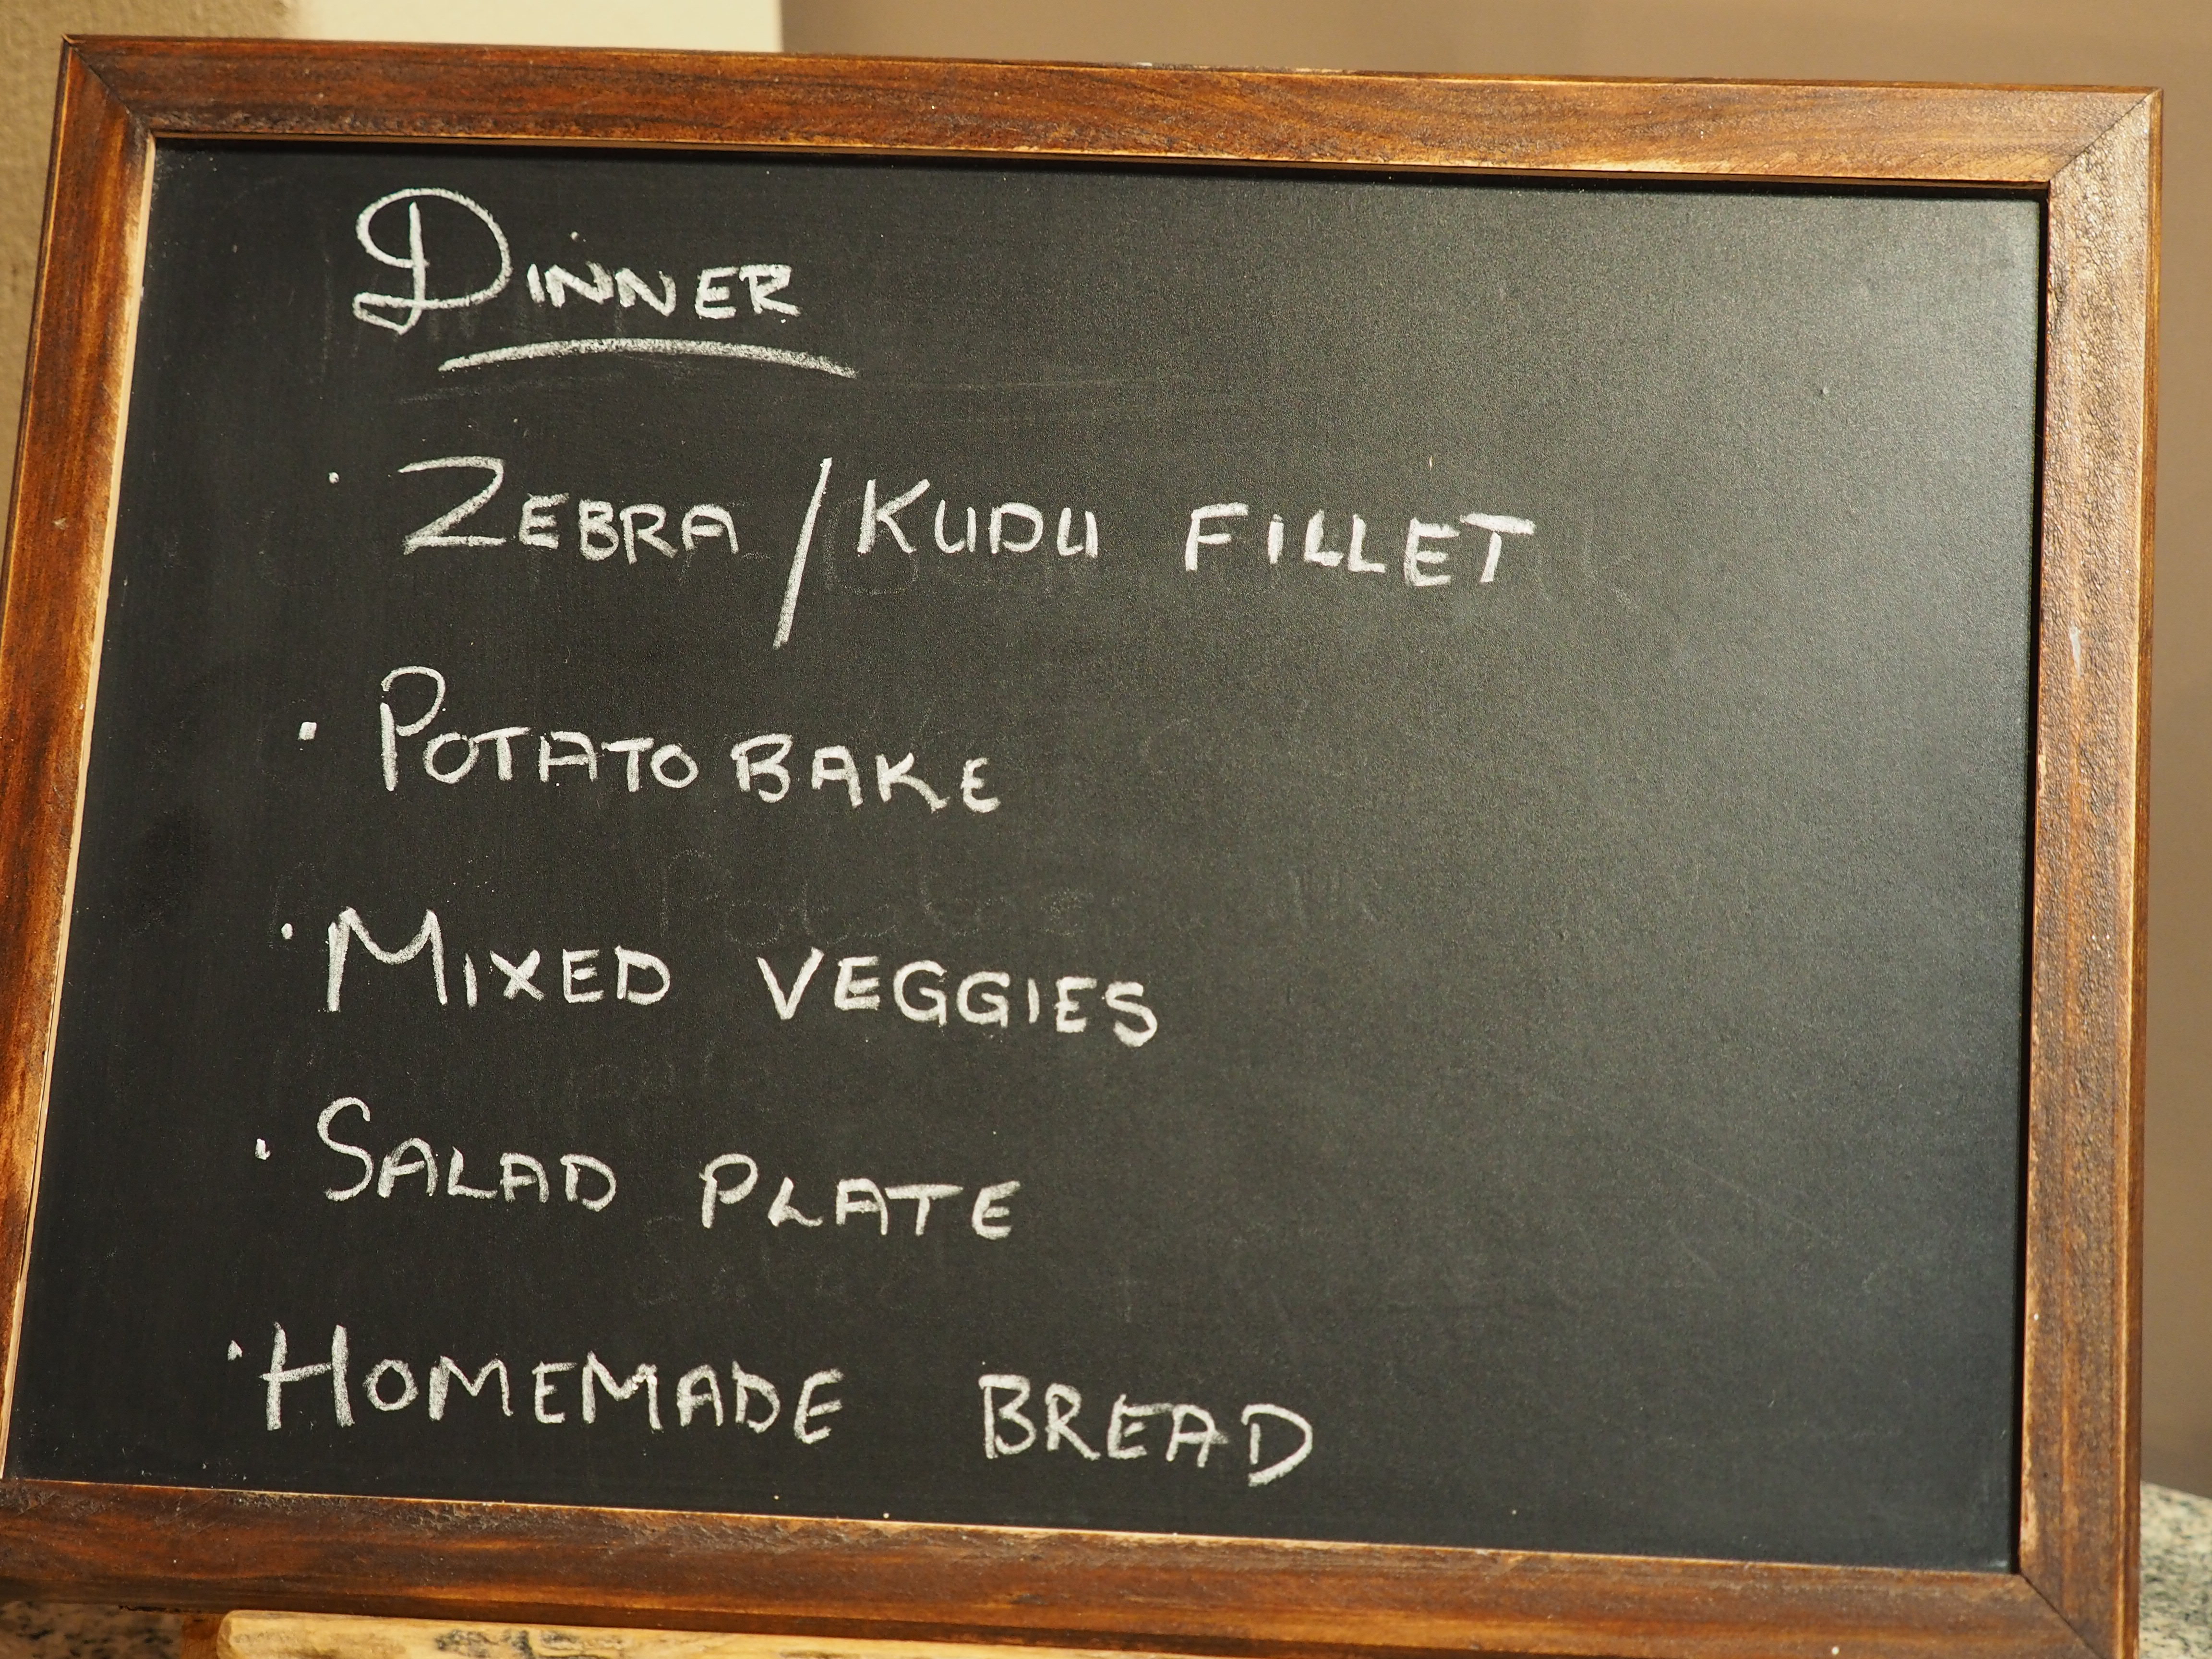 DINNER
· ZEBRA / KUDU FILLET
· POTATO BAKE
· MIXED VEGGIES
· SALAD PLATE
· HOMEMADE BREAD